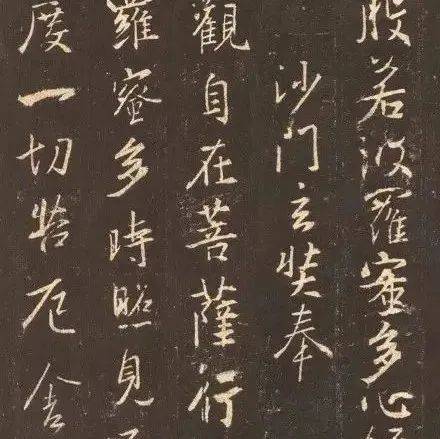 般若波羅蜜多心經
沙門玄奘奉
觀自在菩薩行
羅蜜多時照見
度一切苦厄舍